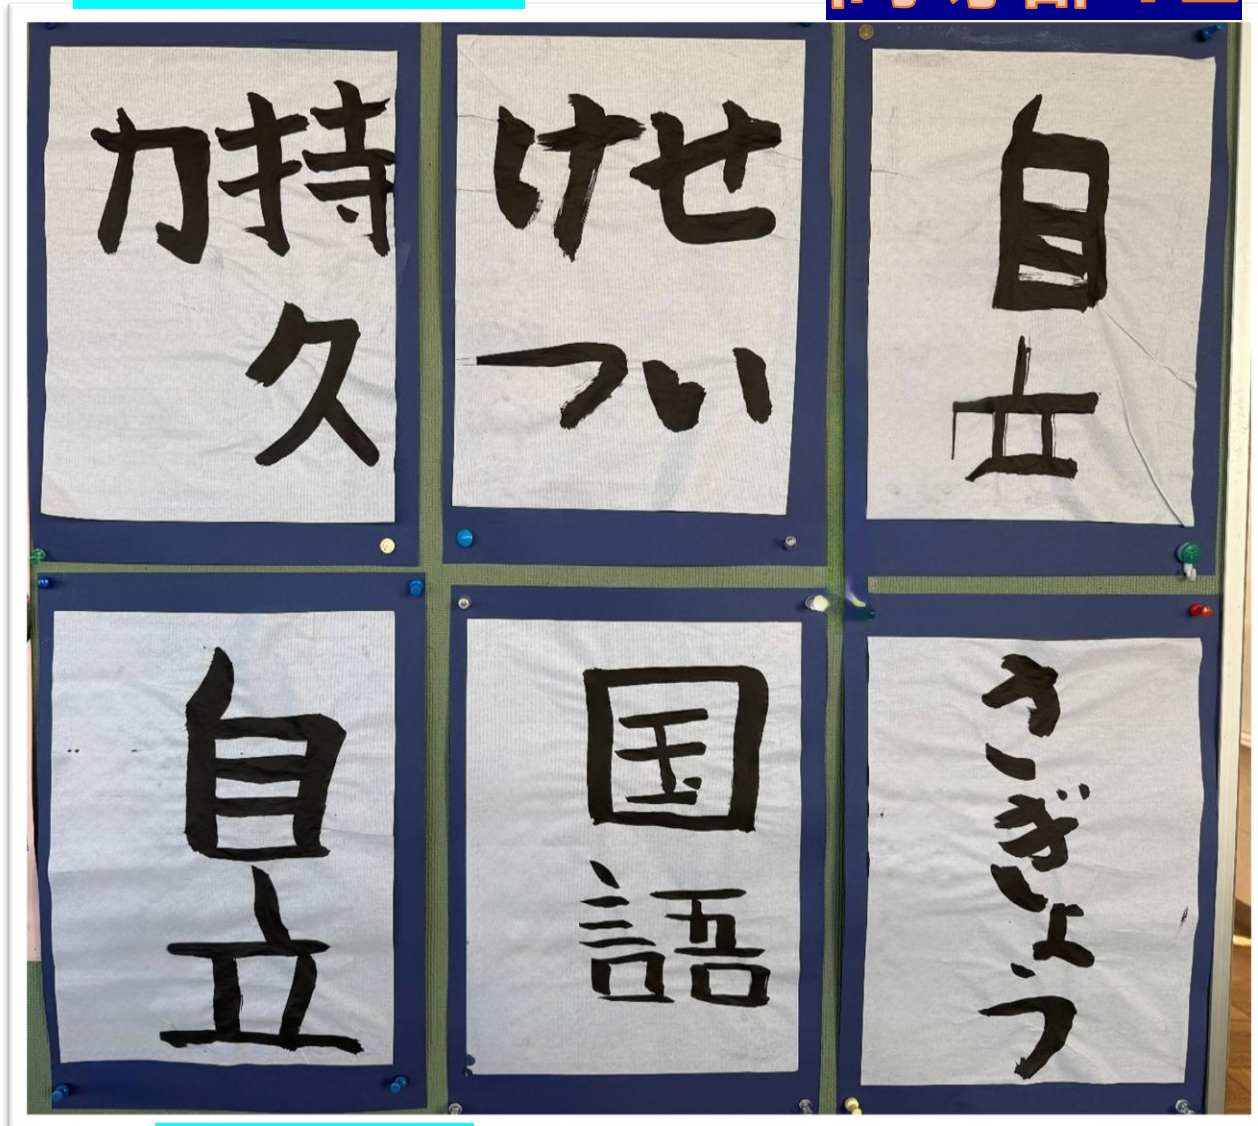 持久
力
せい
けつ
自立
自立
国語
さぎょう